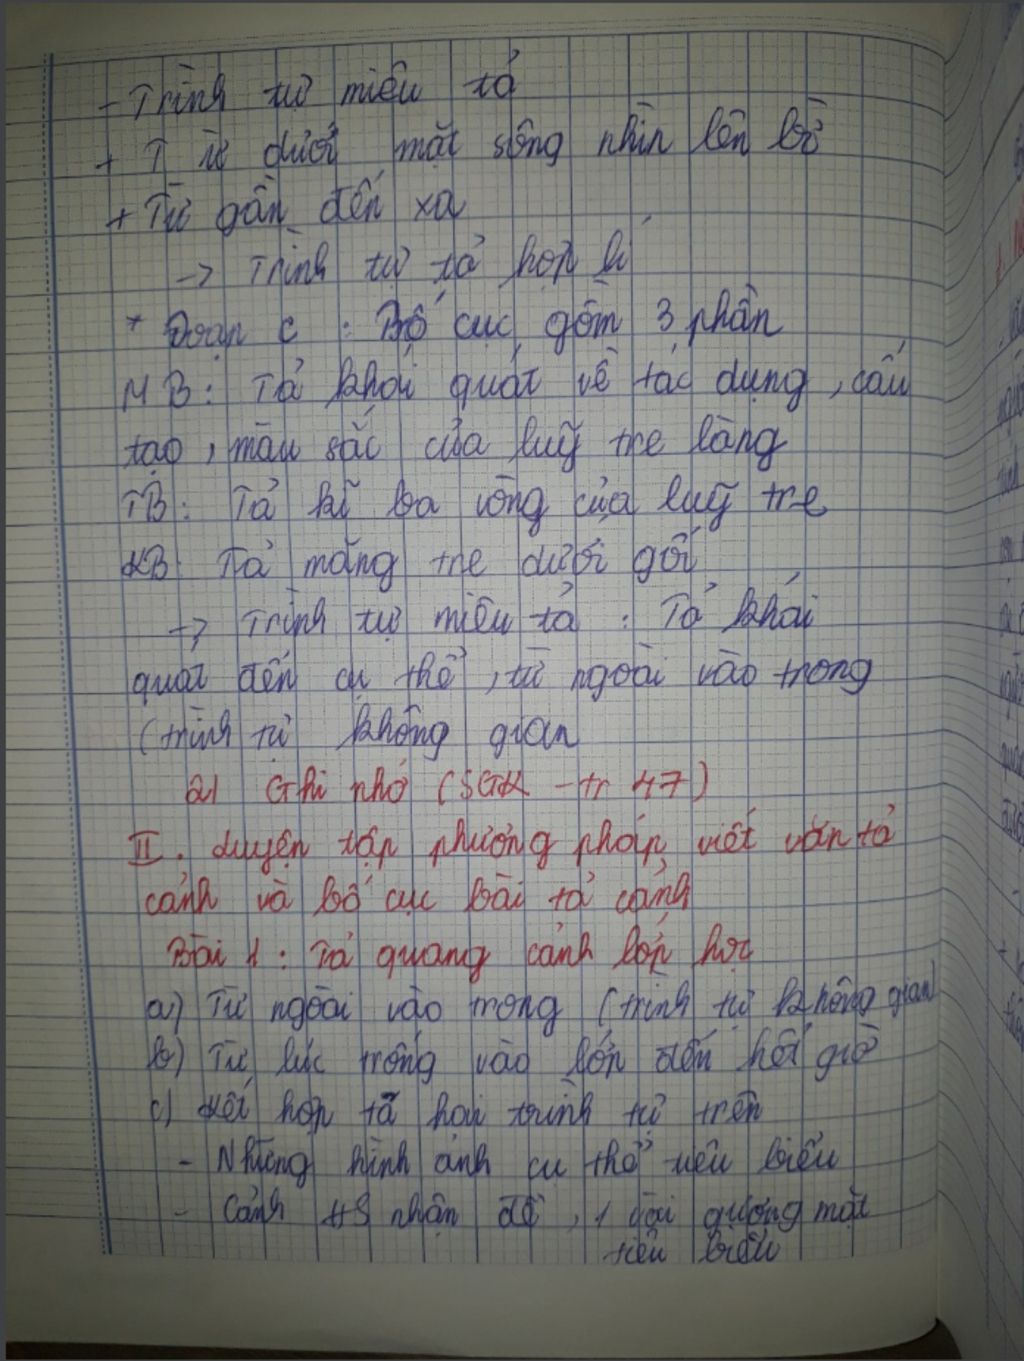 - Trình tự miêu tả
+ Từ dưới mặt sông nhìn lên bờ
+ Từ gần đến xa
-> Trình tự tả hợp lí
* Đoạn c : Bố cục gồm 3 phần
MB : Tả khái quát về tác dụng, cấu
tạo, màu sắc của luỹ tre làng
TB : Tả kĩ ba vòng của luỹ tre
KB : Tả măng tre dưới gốc
-> Trình tự miêu tả : Tả khái
quát đến cụ thể, từ ngoài vào trong
(trình tự không gian
2) Ghi nhớ (SGK - tr 47)
II. Luyện tập phương pháp viết văn tả
cảnh và bố cục bài tả cảnh
Bài 1 : Tả quang cảnh lớp học
a) Từ ngoài vào trong (trình tự không gian)
b) Từ lúc trống vào lớp đến hết giờ
c) Kết hợp tả hai trình tự trên
- Những hình ảnh cụ thể tiêu biểu
- Cảnh HS nhận đề, 1 vài gương mặt
tiêu biểu